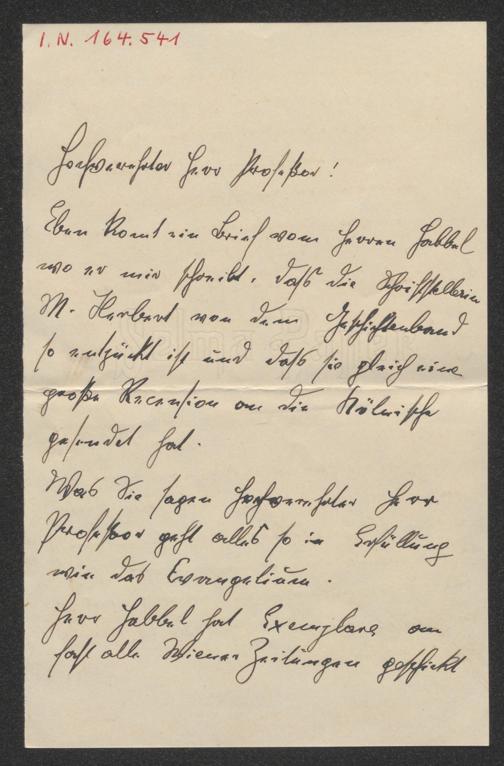 I. N. 164.541
Hochverehrter Herr Profeßor!
Eben komt ein Brief vom Herren Habbel
wo er mir schreibt, daß die Schriftstellerin
M. Herbert von dem Geschichtenband
so entzückt ist und daß sie gleich eine
große Recension an die Kölnische
gesendet hat.
Was Sie sagen hochverehrter Herr
Profeßor geht alles so in Erfüllung
wie das Evangelium.
Herr Habbel hat Exemplare an
fast alle Wiener Zeitungen geschickt